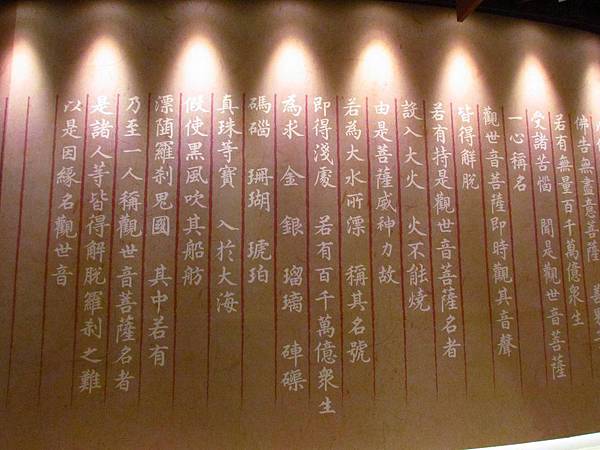 佛告無盡意菩薩 善男子
若有無量百千萬億衆生
受諸苦惱 聞是觀世音菩薩
一心稱名
觀世音菩薩即時觀其音聲
皆得解脫
若有持是觀世音菩薩名者
設入大火 火不能燒
由是菩薩威神力故
若為大水所漂 稱其名號
即得淺處 若有百千萬億衆生
為求 金 銀 瑠璃 硨磲
碼碯 珊瑚 琥珀
真珠等寶 入於大海
假使黑風吹其船舫
漂墮羅刹鬼國 其中若有
乃至一人稱觀世音菩薩名者
是諸人等皆得解脫羅刹之難
以是因緣名觀世音